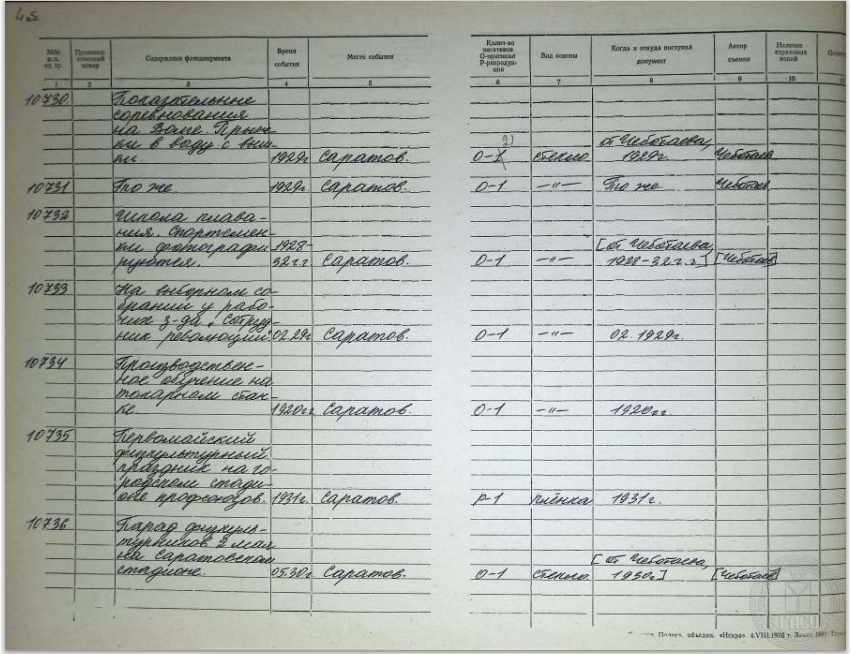 №№ п.п. ед. хр. | Производственный номер | Содержание фотодокумента | Время события | Место события | Колич-во негативов О-оригинал Р-репродукция | Вид основы | Когда и откуда поступил документ | Автор съемки | Наличие страховых копий
1 | 2 | 3 | 4 | 5 | 6 | 7 | 8 | 9 | 10
10730 Показательные
соревнования
на Волге. Прыж-
ки в воду с выш- 2) от Чеботаева,
ки. 1929г. Саратов. О-1 стекло 1929г. Чеботаев
10731 То же. 1929г. Саратов. О-1 —"— То же. Чеботаев
10732 Школа плава-
ния. Спортсмен-
ки фотографи- 1928- [от Чеботаева,
руются. 32 г.г. Саратов. О-1 —"— 1928-32 г.г.] [Чеботаев]
10733 На выборном со-
брании у рабо-
чих з-да „Сотруд-
ник революции". 02.29г. Саратов. О-1 —"— 02.1929г.
10734 Производствен-
ное обучение на
токарном стан-
ке. 1920гг. Саратов. О-1 —"— 1920гг.
10735 Первомайский
физкультурный
праздник на го-
родском стади-
оне профсоюзов. 1931г. Саратов. Р-1 плёнка 1931г.
10736 Парад физкуль-
турников 2 мая
на Саратовском [от Чеботаева,
стадионе. 05.30г. Саратов. О-1 стекло 1930г.] [Чеботаев]
Полигр. объедин. «Искра» 4.VIII.1986 г.